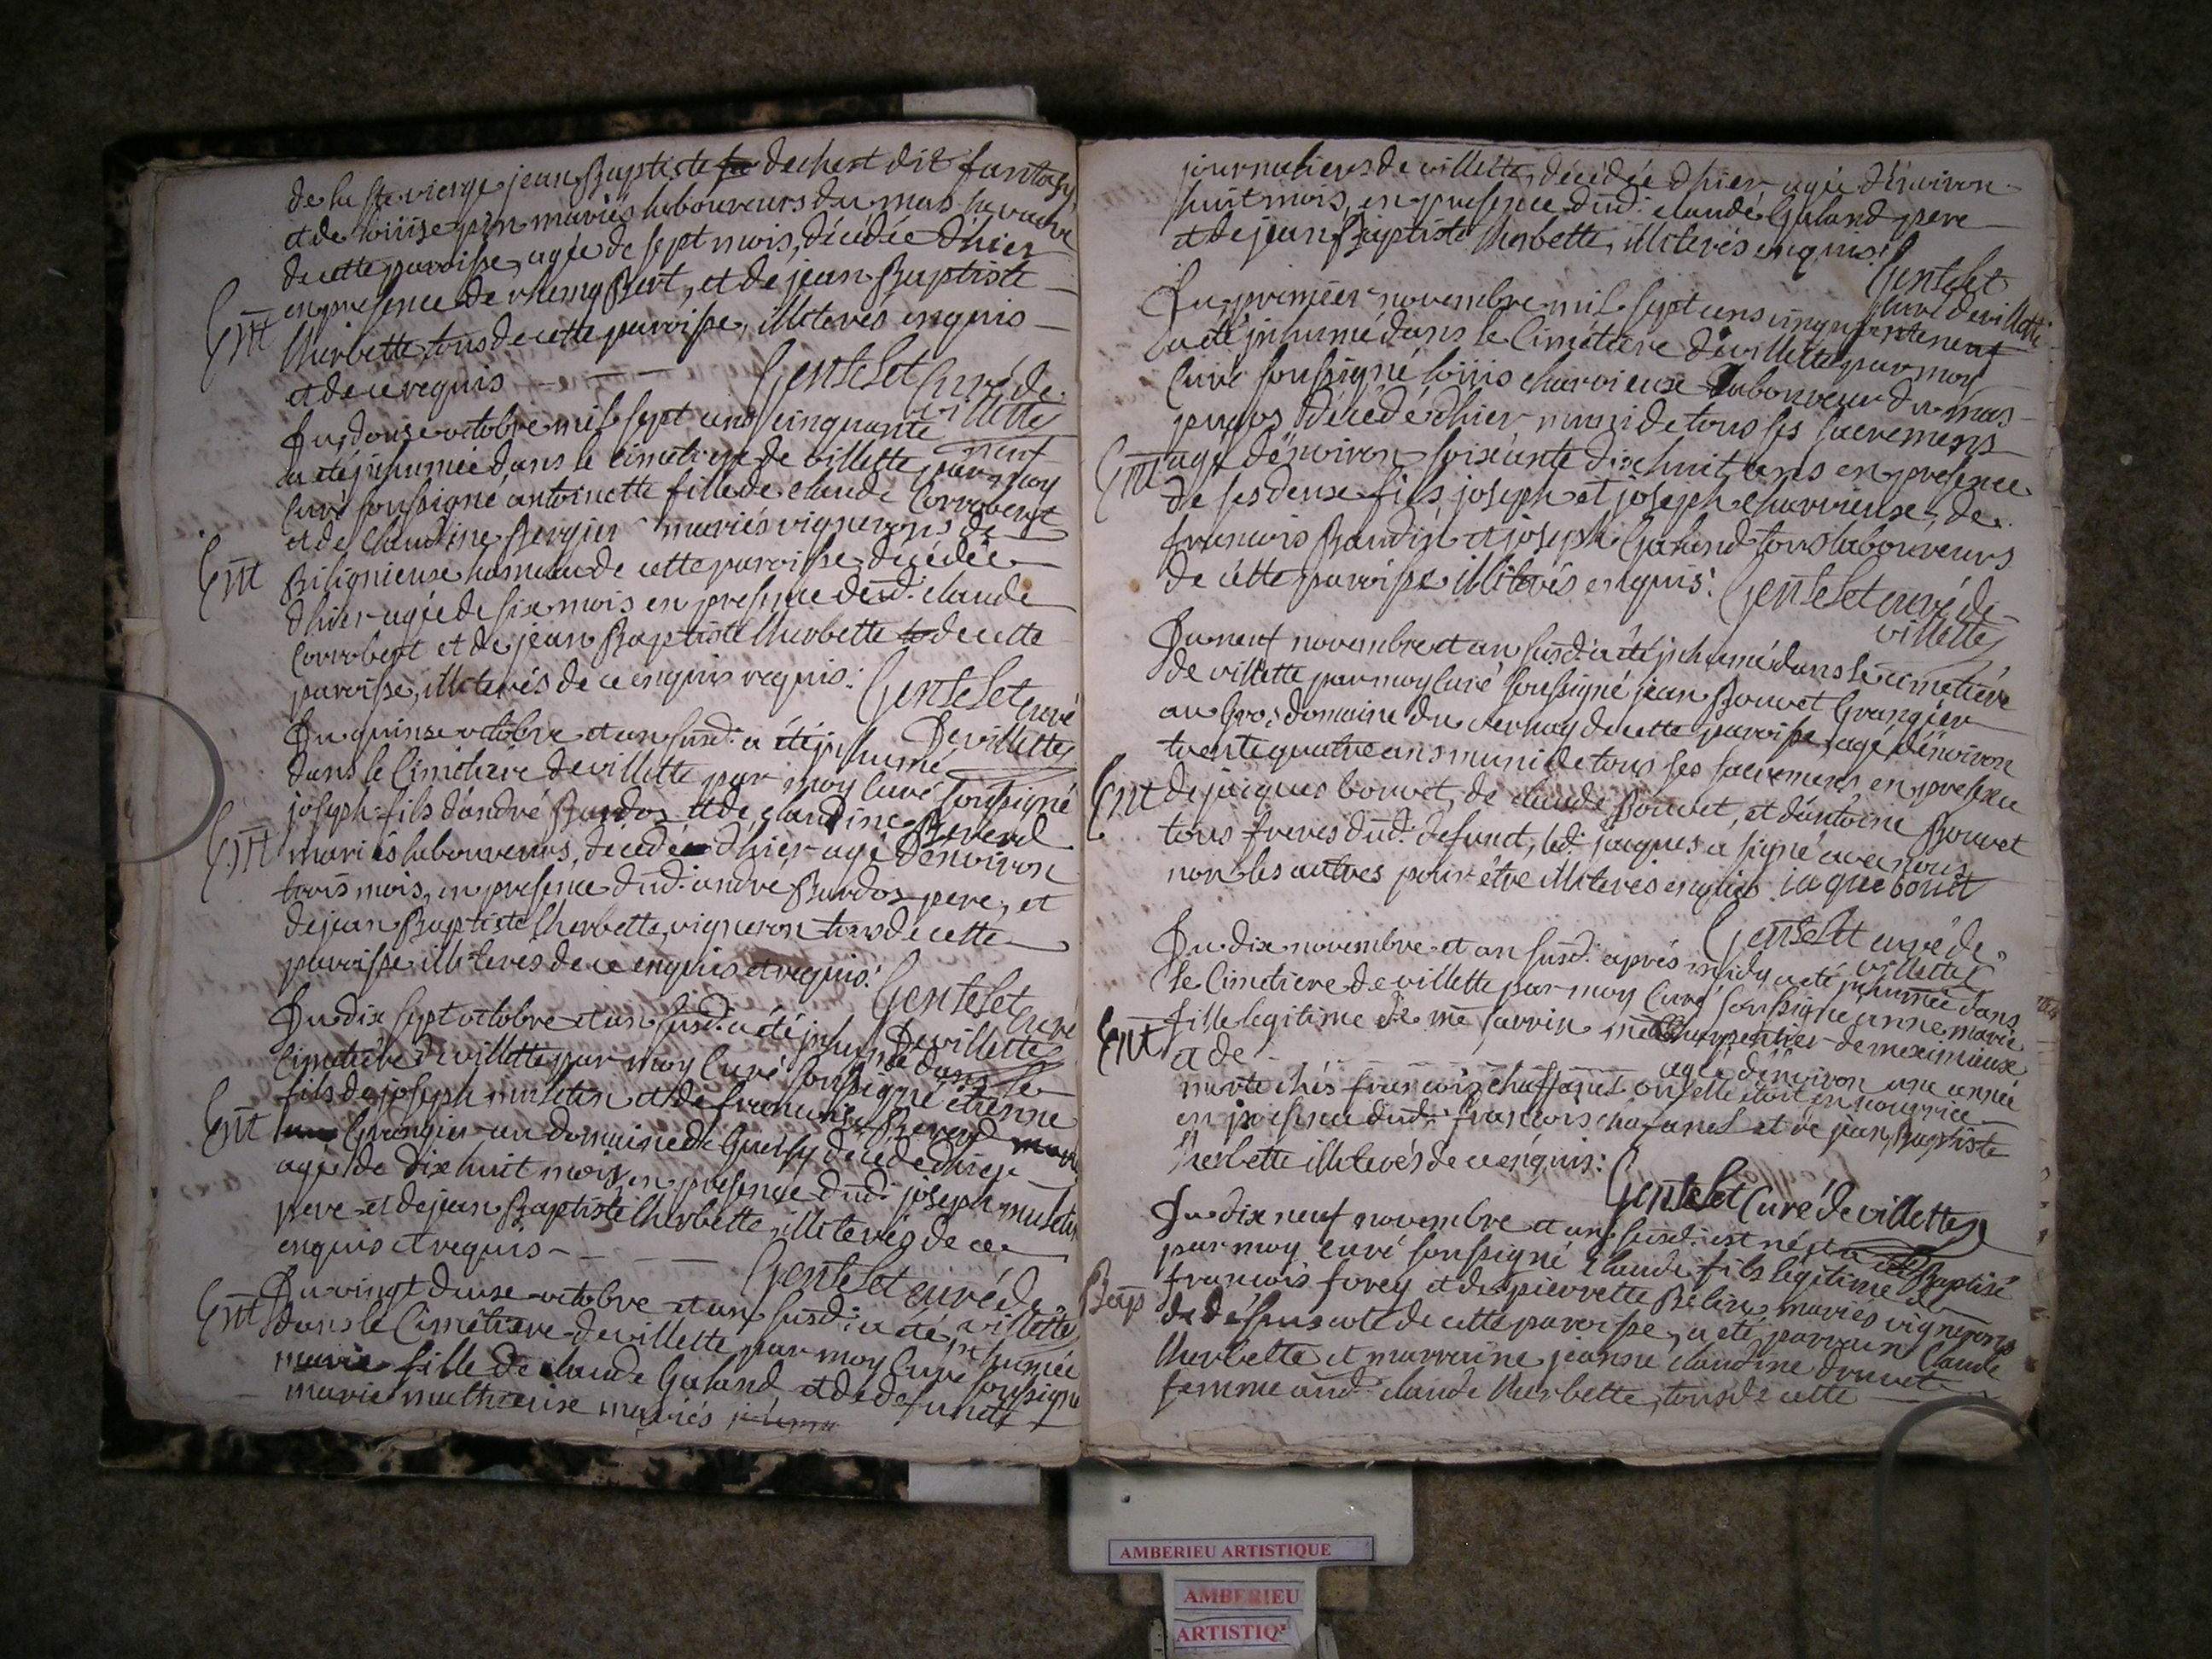 de la ste vierge jean Baptiste dechert dit fantasy
et de loüise mariés laboureurs du mas
de cette paroisse, agée de sept mois, décédée d'hier
Ent en presence de rhemy Bert, et de jean Baptiste
lherbette tous de cette paroisse, illiterés enquis
et de ce requis Gentelet Curé de
villette
Du douse octobre mil sept cens cinquante neuf
a été inhumée dans le cimetiere de villette par moy
Curé soussigné antoinette fille de claude Corrobert
et de Claudine Bergier mariés vignerons de
Ent Bilignieuse hameau de cette paroisse decedée
d'hier agée de six mois en presence dud. claude
Corrobert et de jean Baptiste lherbette de cette
paroisse, illiterés de ce enquis requis. Gentelet curé
De villette
Du quinse octobre et an susd. a été inhumé
dans le Cimetiere de villette par moy Curé soussigné
joseph fils d'andré Burdos et de claudine Beverd
Ent mariés laboureurs, decedé d'hier agé d'environ
trois mois, en presence dud. andré Burdos pere, et
de jean Baptiste lherbette vigneron tous de cette
paroisse illiterés de ce enquis et requis. Gentelet
Curé
De villette
Du dix sept octobre et an susd. a été inhumé dans le
Cimetiere de villette par moy Curé soussigné étienne
fils de joseph musletin et de francoise Beverd
Ent Grangier au domaine de decedé d'hier
agé de dix huit mois, en presence dud. joseph musletin
pere et de jean Baptiste lherbette, illiterés de ce
enquis et requis Gentelet curé de
villette
Ent Du vingt deuse octobre et an susd. a été inhumée
dans le Cimetiere de villette par moy Curé soussigné
marie fille de claude Galand et de defuncte
marie mathieuse mariés
journaliers de villette, décédée d'hier, agée d'environ
huit mois, en presence dud. claude Galand pere
et de jean Baptiste lherbette, illiterés enquis.
Gentelet
Curé de villette
Du premier novembre mil sept cens cinquanteneuf
a été inhumé dans le Cimetiere de villette par moy
Curé soussigné loüis charvieuse laboureur du mas
décédé d'hier muni de tous ses sacremens
Ent agé d'environ soixante dix huit ans en presence
de ses deux fils, joseph et joseph charvieuse, de
francois Baudin et joseph Galand tous laboureurs
de cette paroisse illiterés enquis. Gentelet curé de
villette
Du neuf novembre et an susd. a été inhumé dans le cimetiere
de villette par moy Curé soussigné jean Bouvet Grangier
au Gros domaine du vernay de cette paroisse, agé d'environ
trente quatre ans muni de tous ses sacremens en presence
Ent de jacques bouvet, de claude Bouvet, et d'antoine Bouvet
tous freres dud. defunct, led. jacques a signé avec nous
non les autres pour être illiterés enquis. iaque bouet
Gentelet curé de
villette
Du dix novembre et an susd. après midy a été inhumée dans
le Cimetiere de villette par moy Curé soussigné anne marie
fille legitime de me savrin me charpentier de meximieuse
Ent et de agée d'environ une année
morte chés francois chaffanel ou elle etoit en nourrice
en presence dud. francois chafanel et de jean Baptiste
lherbette illiterés de ce enquis.
Gentelet Curé de villette
Du dix neuf novembre et an susd. est né et a été Baptisé
par moy curé soussigné claude fils légitime de
Bap francois forey et de pierrette Belin mariés vignerons
de cette paroisse, a été parrain Claude
lherbette et marraine jeanne claudine druvet
femme aud. claude lherbette, tous de cette
AMBERIEU ARTISTIQUE
AMBERIEU
ARTISTIQ